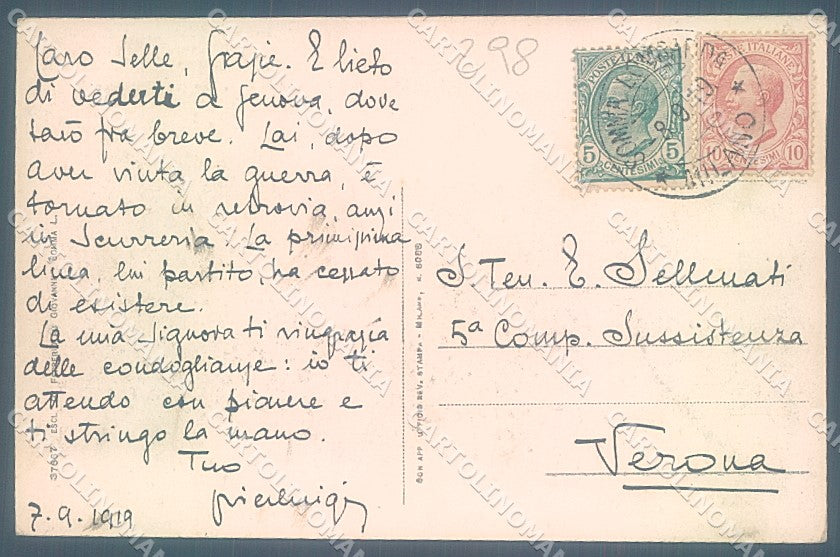 298
Caro Selle, Grazie. È lieto
di vederti a Genova, dove
sarò fra breve. Lai, dopo
aver vinta la guerra, è
tornato in retrovia, anzi
in Scurreria. La primissima
linea, lui partito, ha cessato
di esistere.
La mia Signora ti ringrazia
delle condoglianze: io ti
attendo con piacere e
ti stringo la mano.
Tuo
Pierluigi
7.9.1919
POSTE ITALIANE
5 CENTESIMI 5
POSTE ITALIANE
10 CENTESIMI 10
S. Ten. E. Sellenati
5ª Comp. Sussistenza
Verona
37667
CARTOLINOMANIA